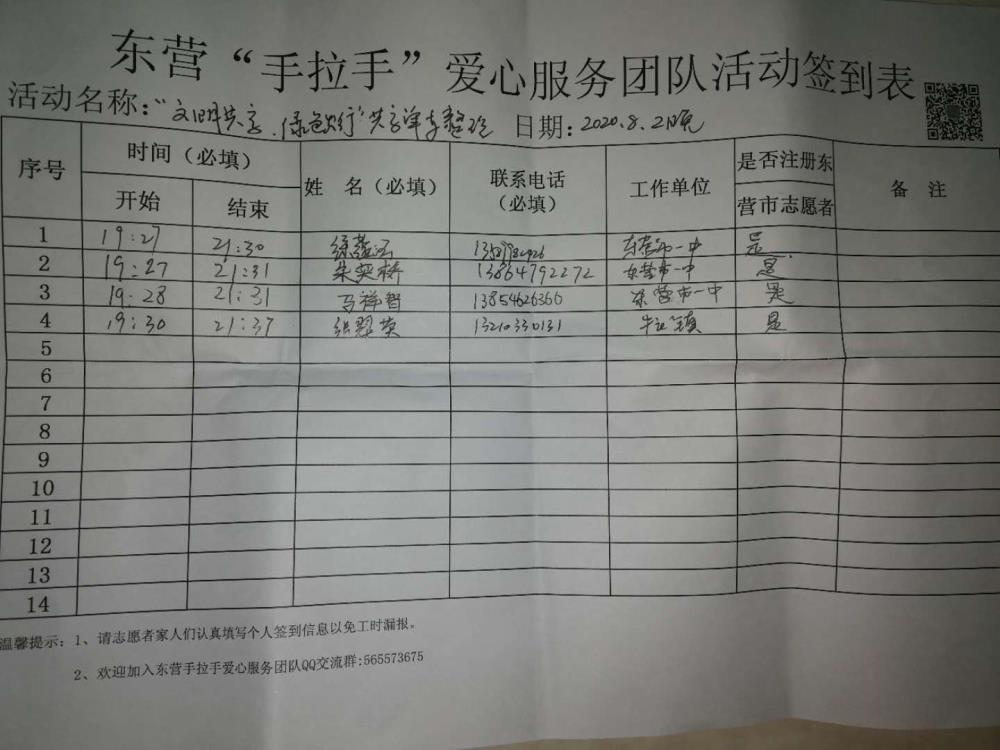 东营“手拉手”爱心服务团队活动签到表
活动名称：“文明共享、绿色出行”共享单车整理 日期：2020.8.2晚
序号 时间（必填） 姓 名（必填） 联系电话（必填） 工作单位 是否注册东营市志愿者 备 注
开始 结束
1 19:27 21:30 东营市一中 是
2 19:27 21:31 朱奕桥 13864792272 东营市一中 是
3 19:28 21:31 马祥智 13854626366 东营市一中 是
4 19:30 21:37 张翠英 13210330131 牛庄镇 是
5
6
7
8
9
10
11
12
13
14
温馨提示：1、请志愿者家人们认真填写个人签到信息以免工时漏报。
2、欢迎加入东营手拉手爱心服务团队QQ交流群:565573675